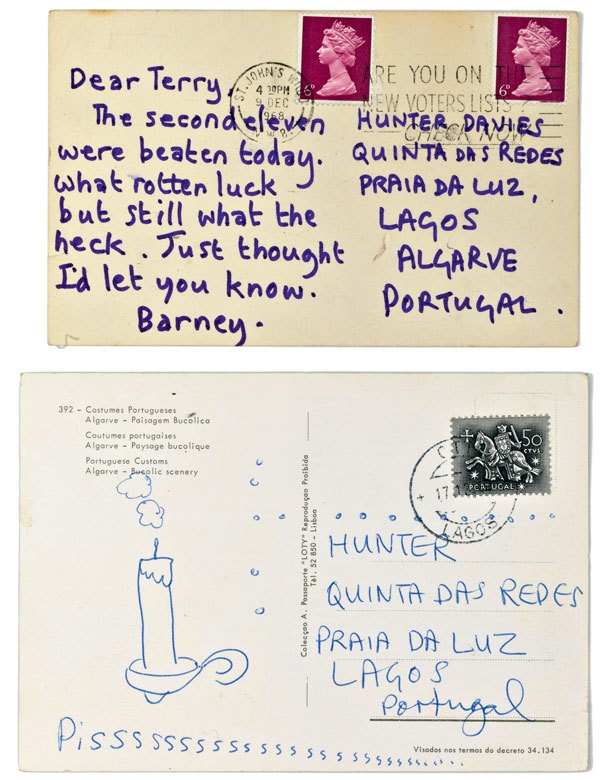 Dear Terry.
The second eleven
were beaten today.
what rotten luck
but still what the
heck. Just thought
I'd let you know.
Barney.
ST. JOHN'S WOOD
4 30PM
9 DEC
1968
N.W.8.
6ᴰ
6ᴰ
ARE YOU ON THE
NEW VOTERS LISTS?
CHECK NOW
HUNTER DAVIES
QUINTA DAS REDES
PRAIA DA LUZ,
LAGOS
ALGARVE
PORTUGAL.
392 – Costumes Portugueses
Algarve – Paisagem Bucolica
Coutumes portugaises
Algarve – Paysage bucolique
Portuguese Customs
Algarve – Bucolic scenery
Pisssssssssssssssssss.....
Colecção A. Passaporte "LOTY" Reprodução Proibida
Tél. 52 850 – Lisboa
50
CTVS.
PORTUGAL
LAGOS
HUNTER
QUINTA DAS REDES
PRAIA DA LUZ
LAGOS
Portugal
Visados nos termos do decreto 34.134